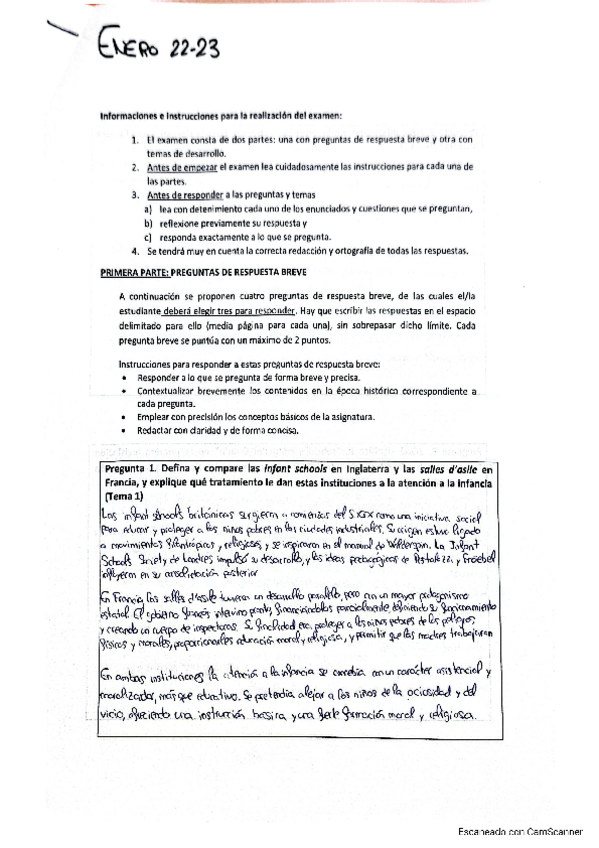 ENERO 22-23
Informaciones e instrucciones para la realización del examen:
1. El examen consta de dos partes: una con preguntas de respuesta breve y otra con
temas de desarrollo.
2. Antes de empezar el examen lea cuidadosamente las instrucciones para cada una de
las partes.
3. Antes de responder a las preguntas y temas
a) lea con detenimiento cada uno de los enunciados y cuestiones que se preguntan,
b) reflexione previamente su respuesta y
c) responda exactamente a lo que se pregunta.
4. Se tendrá muy en cuenta la correcta redacción y ortografía de todas las respuestas.
PRIMERA PARTE: PREGUNTAS DE RESPUESTA BREVE
A continuación se proponen cuatro preguntas de respuesta breve, de las cuales el/la
estudiante deberá elegir tres para responder. Hay que escribir las respuestas en el espacio
delimitado para ello (media página para cada una), sin sobrepasar dicho límite. Cada
pregunta breve se puntúa con un máximo de 2 puntos.
Instrucciones para responder a estas preguntas de respuesta breve:
• Responder a lo que se pregunta de forma breve y precisa.
• Contextualizar brevemente los contenidos en la época histórica correspondiente a
cada pregunta.
• Emplear con precisión los conceptos básicos de la asignatura.
• Redactar con claridad y de forma concisa.
Pregunta 1. Defina y compare las infant schools en Inglaterra y las salles d'asile en
Francia, y explique qué tratamiento le dan estas instituciones a la atención a la infancia
(Tema 1)
Las infant schools británicas surgieron a comienzos del S.XIX como una iniciativa social
para educar y proteger a los niños pobres en las ciudades industriales. Su origen estuvo ligado
a movimientos filantrópicos y religiosos, y se inspiraron en el manual de Wilderspin. La Infant
Schools Society de Londres impulsó su desarrollo, y las ideas pedagógicas de Pestalozzi y Froebel
influyeron en su consolidación posterior
En Francia las salles d'asile tuvieron un desarrollo paralelo, pero con un mayor protagonismo
estatal. El gobierno francés intervino pronto, financiándolas parcialmente, definiendo su funcionamiento
y creando un cuerpo de inspectoras. Su finalidad era proteger a los niños pobres de los peligros
físicos y morales, proporcionarles educación moral y religiosa, y permitir que las madres trabajaran
En ambas instituciones la atención a la infancia se concebía con un carácter asistencial y
moralizador, más que educativo. Se pretendía alejar a los niños de la ociosidad y del
vicio, ofreciendo una instrucción básica y una fuerte formación moral y religiosa.
Escaneado con CamScanner